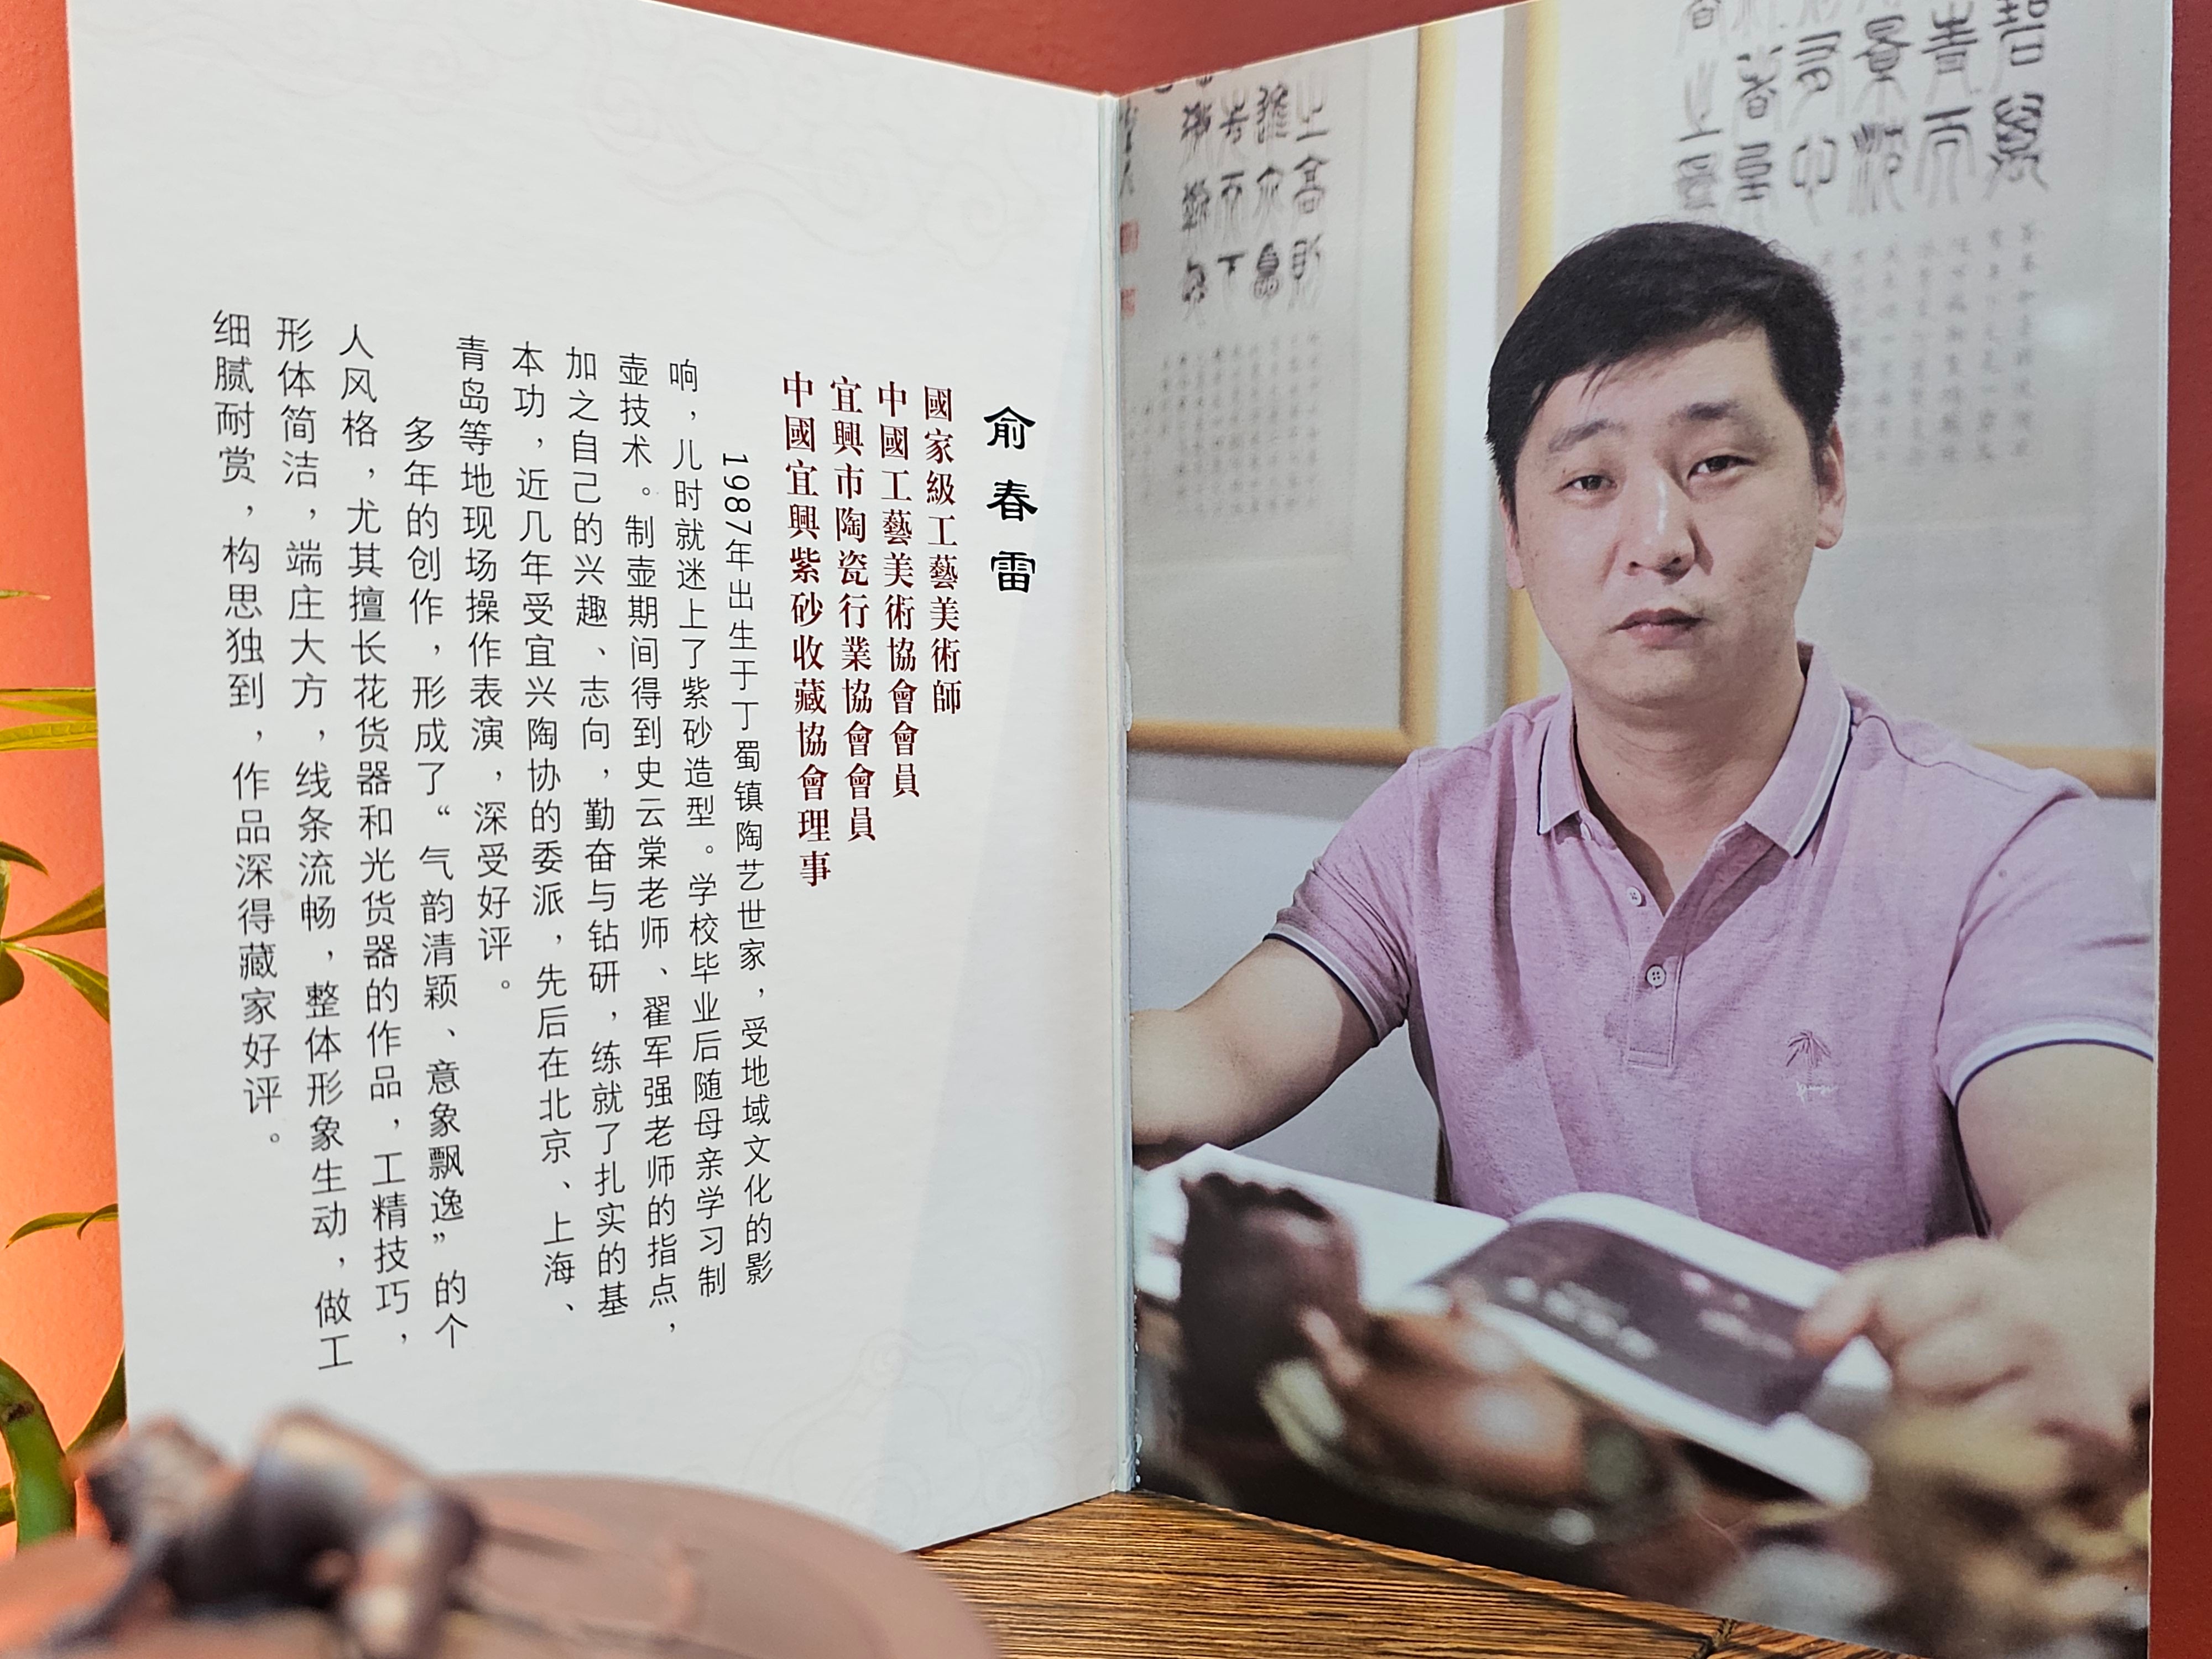 俞春雷
國家級工藝美術師
中國工藝美術協會會員
宜興市陶瓷行業協會會員
中國宜興紫砂收藏協會理事
1987年出生于丁蜀镇陶艺世家，受地域文化的影
响，儿时就迷上了紫砂造型。学校毕业后随母亲学习制
壶技术。制壶期间得到史云棠老师、翟军强老师的指点，
加之自己的兴趣、志向，勤奋与钻研，练就了扎实的基
本功，近几年受宜兴陶协的委派，先后在北京、上海、
青岛等地现场操作表演，深受好评。
多年的创作，形成了“气韵清颖、意象飘逸”的个
人风格，尤其擅长花货器和光货器的作品，工精技巧，
形体简洁，端庄大方，线条流畅，整体形象生动，做工
细腻耐赏，构思独到，作品深得藏家好评。